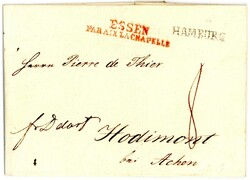 ESSEN
PAR AIX LA CHAPELLE
HAMBURG
Herrn Pierre de Thier
Hodimont
bei Achen